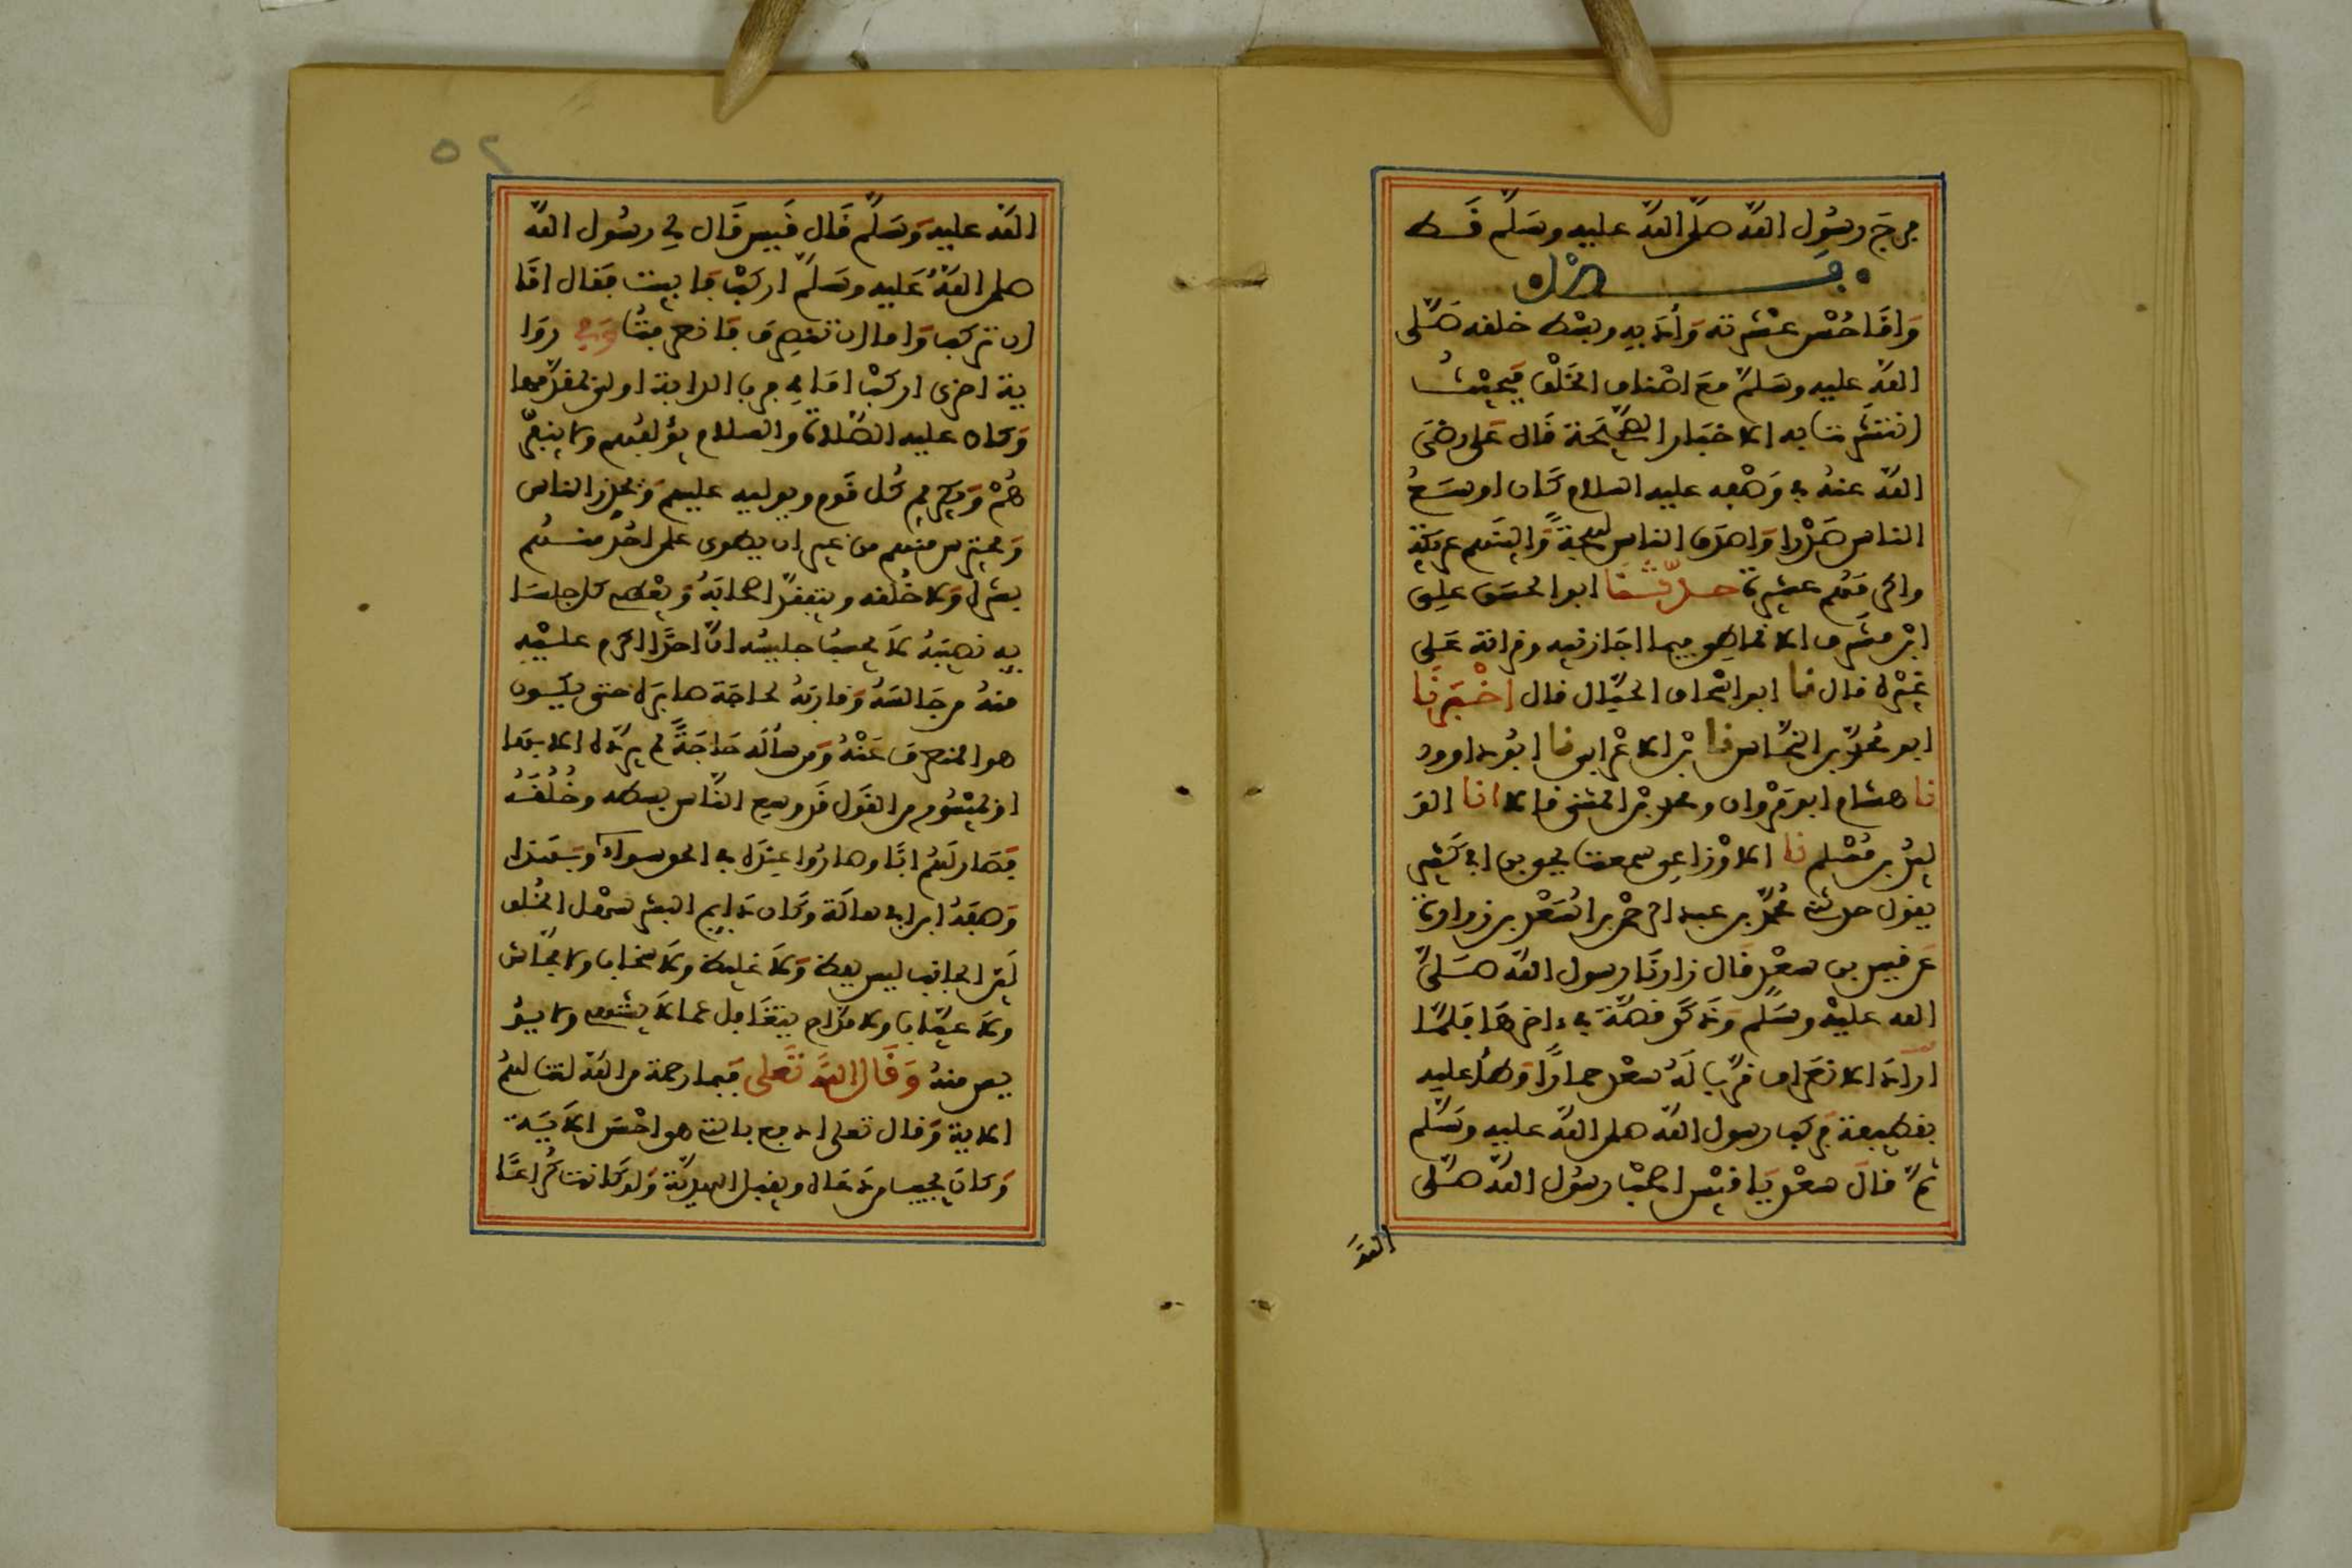 من رسول الله صلى الله عليه وسلم قط
فصل
وأما حسن عشرته وأدبه وبسط خلقه صلى
الله عليه وسلم مع أصناف الخلق فبحيث
انتشرت به الاخبار الصحيحة قال علي رضي
الله عنه في وصفه عليه السلام كان اوسع
الناس صدرا واصدق الناس لهجة والينهم عريكة
واكرمهم عشرة حدثنا ابو الحسن علي
ابن مشرف الانماطي فيما اجازنيه وقرأته على
غيره قال نا ابو اسحاق الحبال قال اخبرنا
ابو محمد بن النحاس نا بن الاعرابي نا ابو داوود
نا هشام ابو مروان ومحمد بن المثنى قالا انا الو
ليد بن مسلم نا الاوزاعي سمعت يحيى بن ابي كثير
يقول حدثني محمد بن عبد الرحمن بن اسعد بن زرارة
عن قيس بن سعد قال زارنا رسول الله صلى
الله عليه وسلم وذكر قصة في ءاخرها فلما
اراد الانصراف قرب له سعد حمارا وطأ عليه
بقطيفة فركب رسول الله صلى الله عليه وسلم
ثم قال سعد يا قيس اصحب رسول الله صلى
الله
٥٢
الله عليه وسلم قال قيس قال لي رسول الله
صلى الله عليه وسلم اركب فابيت فقال اما
ان تركب واما ان تنصرف فانصرفت وفي روا
ية اخرى اركب امامي فصاحب الدابة اولى بمقدمها
وكان عليه الصلاة والسلام يؤلفهم ولا ينفر
هم ويكرم كريم كل قوم ويوليه عليهم ويحذر الناس
ويحترس منهم من غير ان يطوي على احد منهم
بشره ولا خلقه ويتفقد اصحابه ويعطي كل جلسا
يه نصيبه لا يحسب جليسه ان احدا اكرم عليه
منه من جالسه او قاربه لحاجة صابره حتى يكون
هو المنصرف عنه ومن سأله حاجة لم يرده الا بها
او بميسور من القول قد وسع الناس بسطه وخلقه
فصار لهم ابا وصاروا عنده في الحق سواء وبهذا
وصفه ابن ابي هالة وكان دايم البشر سهل الخلق
لين الجانب ليس بفظ ولا غليظ ولا سخاب ولا فحاش
ولا عياب ولا مداح يتغافل عما لا يشتهي ولا يؤ
يس منه وقال الله تعلى فبما رحمة من الله لنت لهم
الاية وقال تعلى ادفع بالتي هي احسن الاية
وكان يجيب من دعاه ويقبل الهدية ولو كانت كراعا